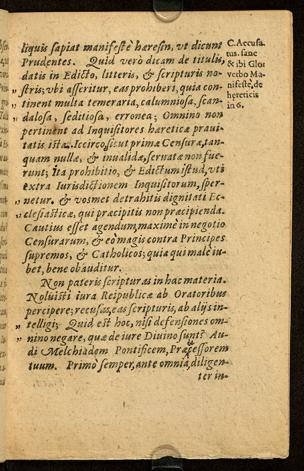 liquis sapiat manifestè hæresin, vt dicunt
Prudentes. Quid verò dicam de titulis,
datis in Edicto, litteris, & scripturis no-
stris; vbi asseritur, eas prohiberi, quia con-
tinent multa temeraria, calumniosa, scan-
dalosa, seditiosa, erronea; Omnino non
pertinent ad Inquisitores hæreticæ praui-
tatis ista. Iccirco, sicut primæ Censuræ, tan-
quam nullæ, & inualidæ, seruatæ non fue-
runt; ita prohibitio, & Edictum istud, vti
extra Iurisdictionem Inquisitorum, sper-
netur, & vosmet detrahitis dignitati Ec-
clesiasticæ, qui præcipitis non præcipienda.
Cautius esset agendum, maximè in negotio
Censurarum, & eò magis contra Principes
supremos, & Catholicos; quia qui malè iu-
bet, benè obauditur.
Non pateris scripturas in hac materia.
Noluisti iura Reipublicæ ab Oratoribus
percipere; recusas, eas scripturis, ab alijs in-
telligi; Quid est hoc, nisi defensiones om-
nino negare, quæ de iure Diuino sunt? Au-
di Melchiadem Pontificem, Præcessorem
tuum. Primò semper, ante omnia, diligen-
ter in-
C. Accusa-
tus. sanè
& ibi Glos.
verbo Ma-
nifestè, de
hæreticis
in 6.